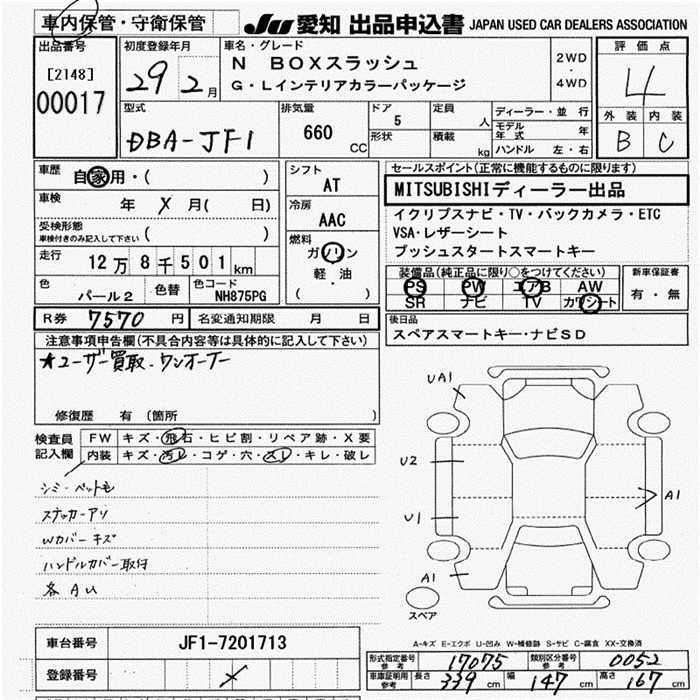 車内保管・守衛保管
JU 愛知 出品申込書 JAPAN USED CAR DEALERS ASSOCIATION
出品番号
[2148]
00017
初度登録年月
29 2月
車名・グレード
N BOXスラッシュ
G・Lインテリアカラーパッケージ
2WD
・
4WD
評価点
4
外装 内装
B C
型式
DBA-JF1
排気量
660
CC
ドア
5
形状
定員
人
積載
kg
ディーラー・並行
モデル年式 年
ハンドル 左・右
車歴
自家用・( )
車検
年 X 月( 日)
受検形態
車検付きのみ記入して下さい ( )
走行
12万8千501km
色
パール2
色替
色コード
NH875PG
シフト
AT
冷房
AAC
燃料
ガソリン
軽・油
( )
セールスポイント(正常に機能するものに限ります)
MITSUBISHIディーラー出品
イクリプスナビ・TV・バックカメラ・ETC
VSA・レザーシート
プッシュスタートスマートキー
装備品(純正品に限り○をつけてください)
PS PW エアB AW
SR ナビ TV カワシート
新車保証書
有・無
R券 7570円
名変通知期限 月 日
後日品
スペアスマートキー・ナビSD
注意事項申告欄(不具合内容等は具体的に記入して下さい)
★ユーザー買取・ワンオーナー
修復歴 有 (箇所 )
検査員
記入欄
FW キズ・飛石・ヒビ割・リペア跡・X要
内装 キズ・汚レ・コゲ・穴・スレ・キレ・破レ
シミ・ペット毛
ステッカーアリ
Wカバーキズ
ハンドルカバー取付
各AU
UA1
U2
U1
A1
A1
スペア
A-キズ E-エクボ U-凹み W-補修跡 S-サビ C-腐食 XX-交換済
車台番号 JF1-7201713
登録番号 X
形式指定番号
参考
17075
類別区分番号
参考
0052
車庫証明用
参考
長さ 339cm 幅 147cm 高さ 167cm